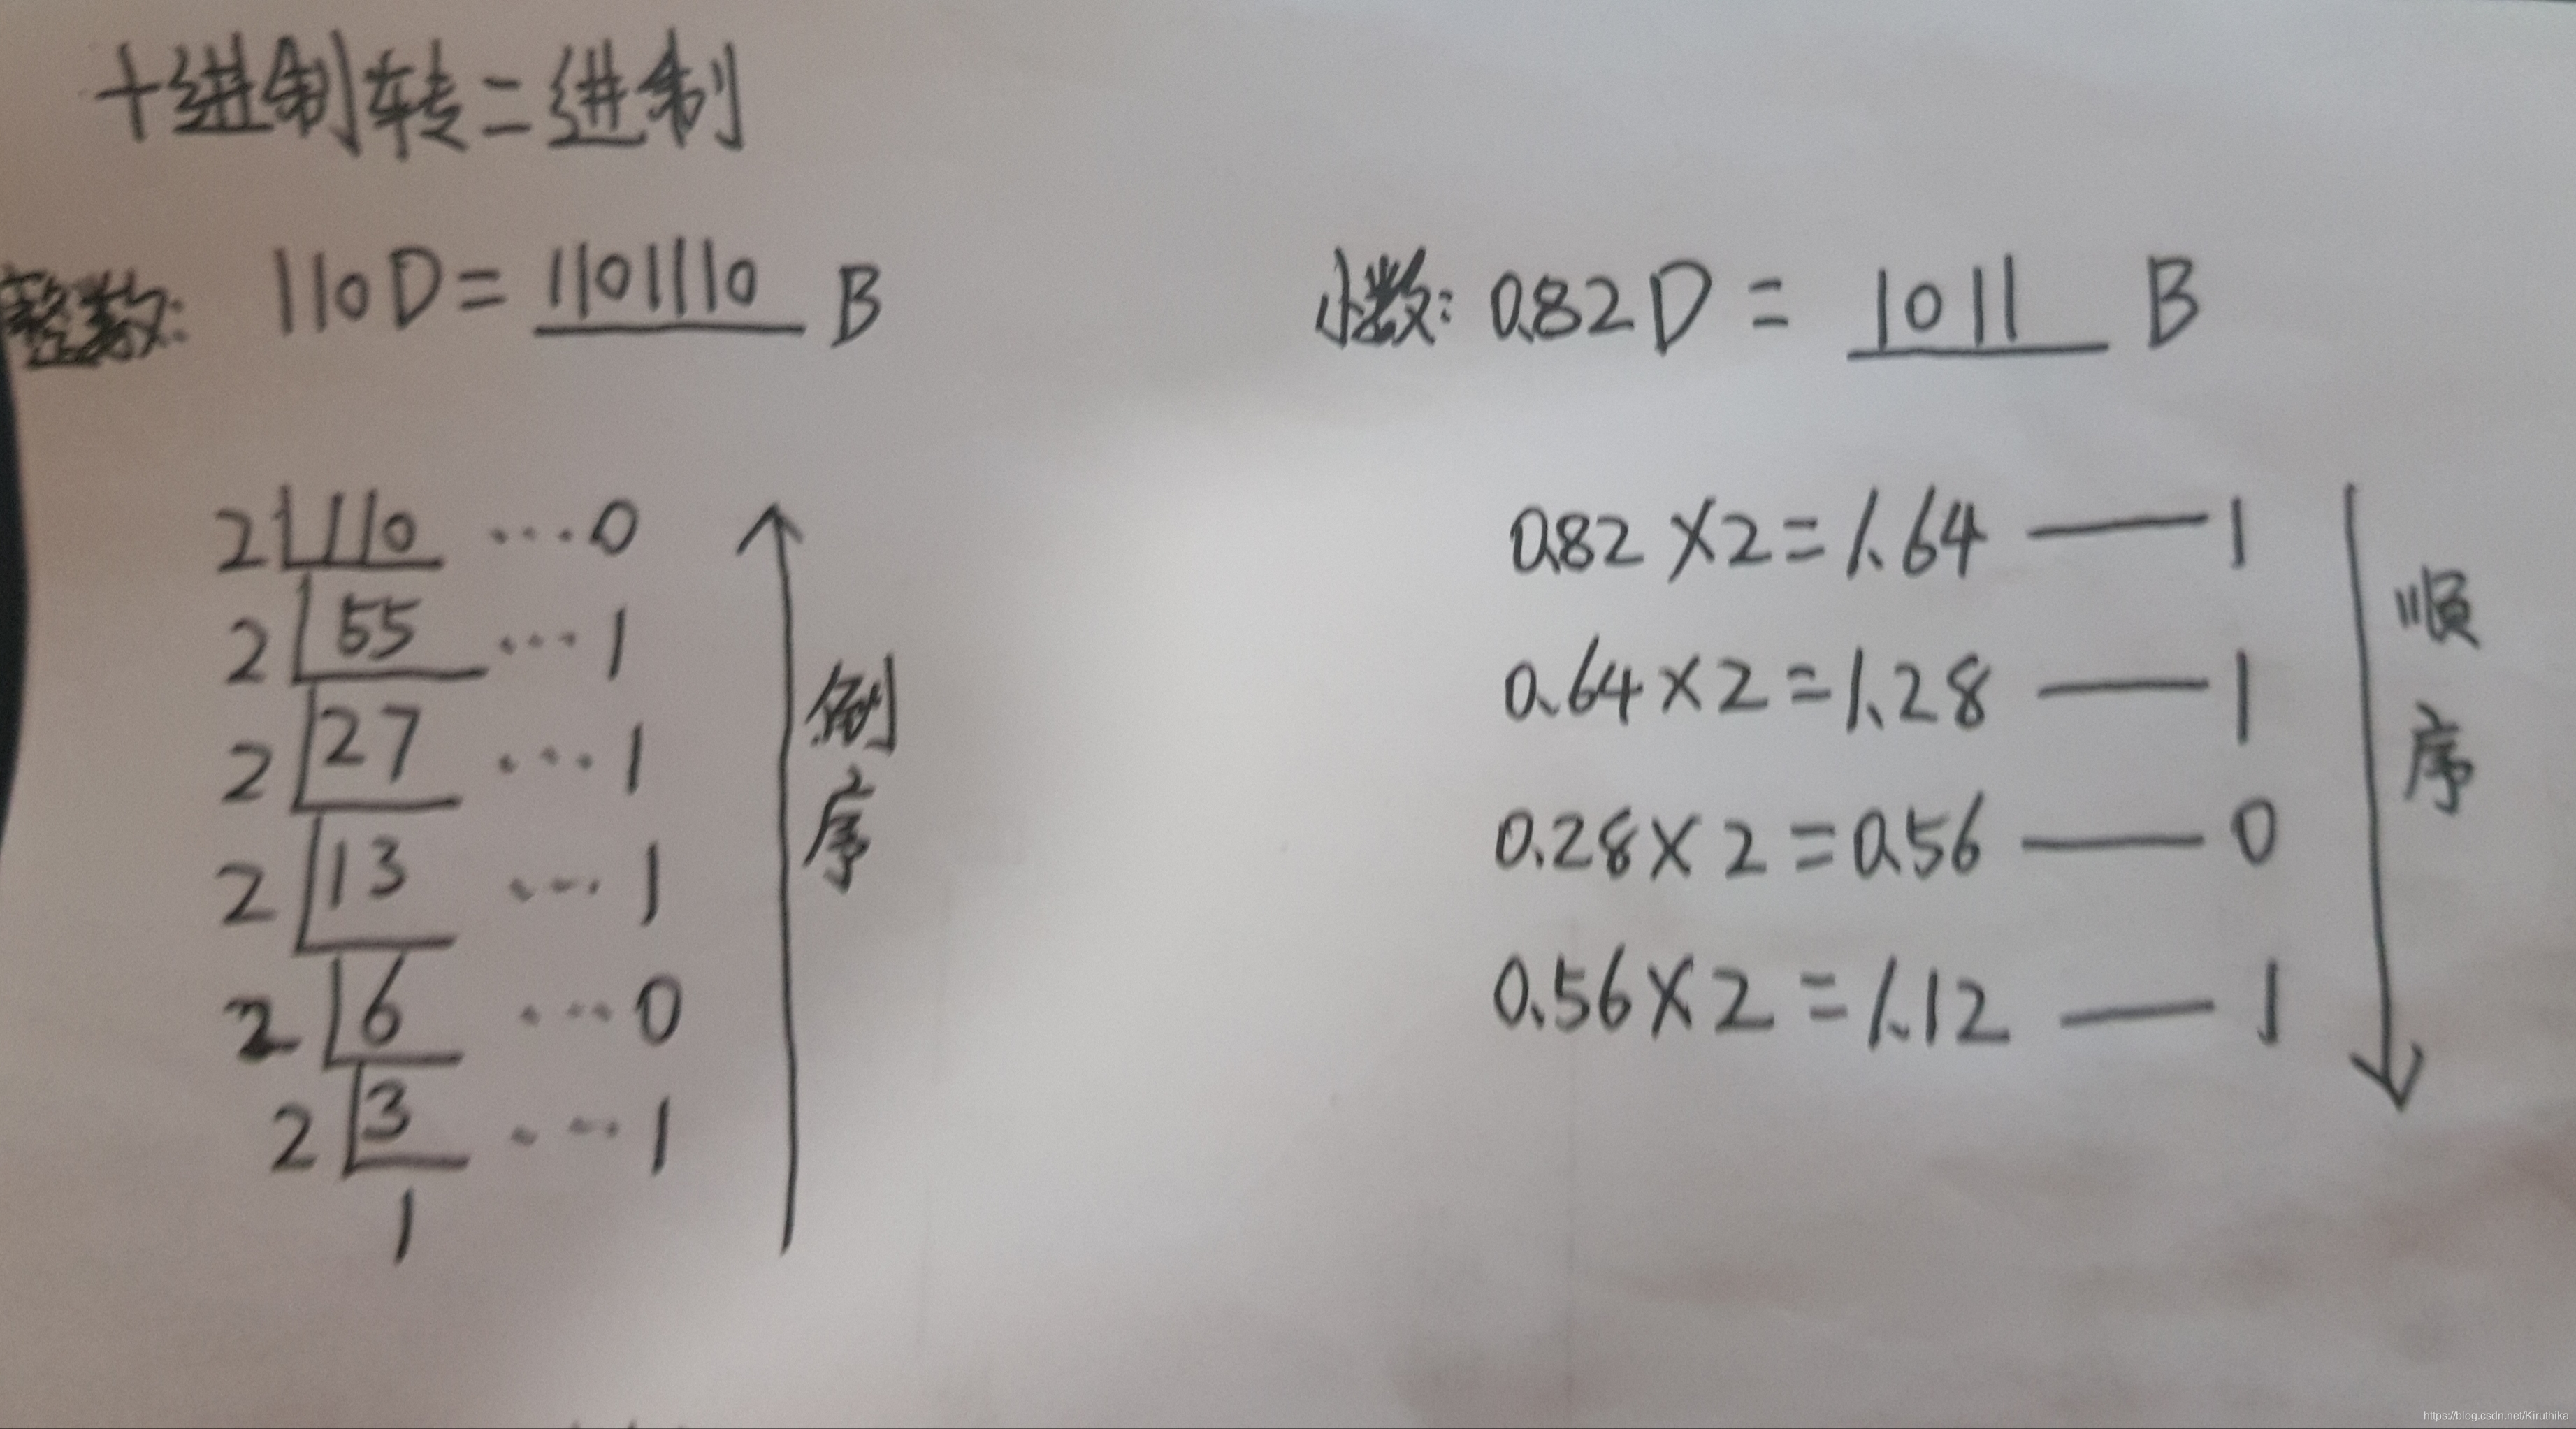 十进制转二进制
整数: 110D = 1101110 B
2 110 ...0
2 55 ...1
2 27 ...1
2 13 ...1
2 6 ...0
2 3 ...1
1
倒序
小数: 0.82D = 1011 B
0.82×2=1.64 — 1
0.64×2=1.28 — 1
0.28×2=0.56 — 0
0.56×2=1.12 — 1
顺序
https://blog.csdn.net/Kiruthika